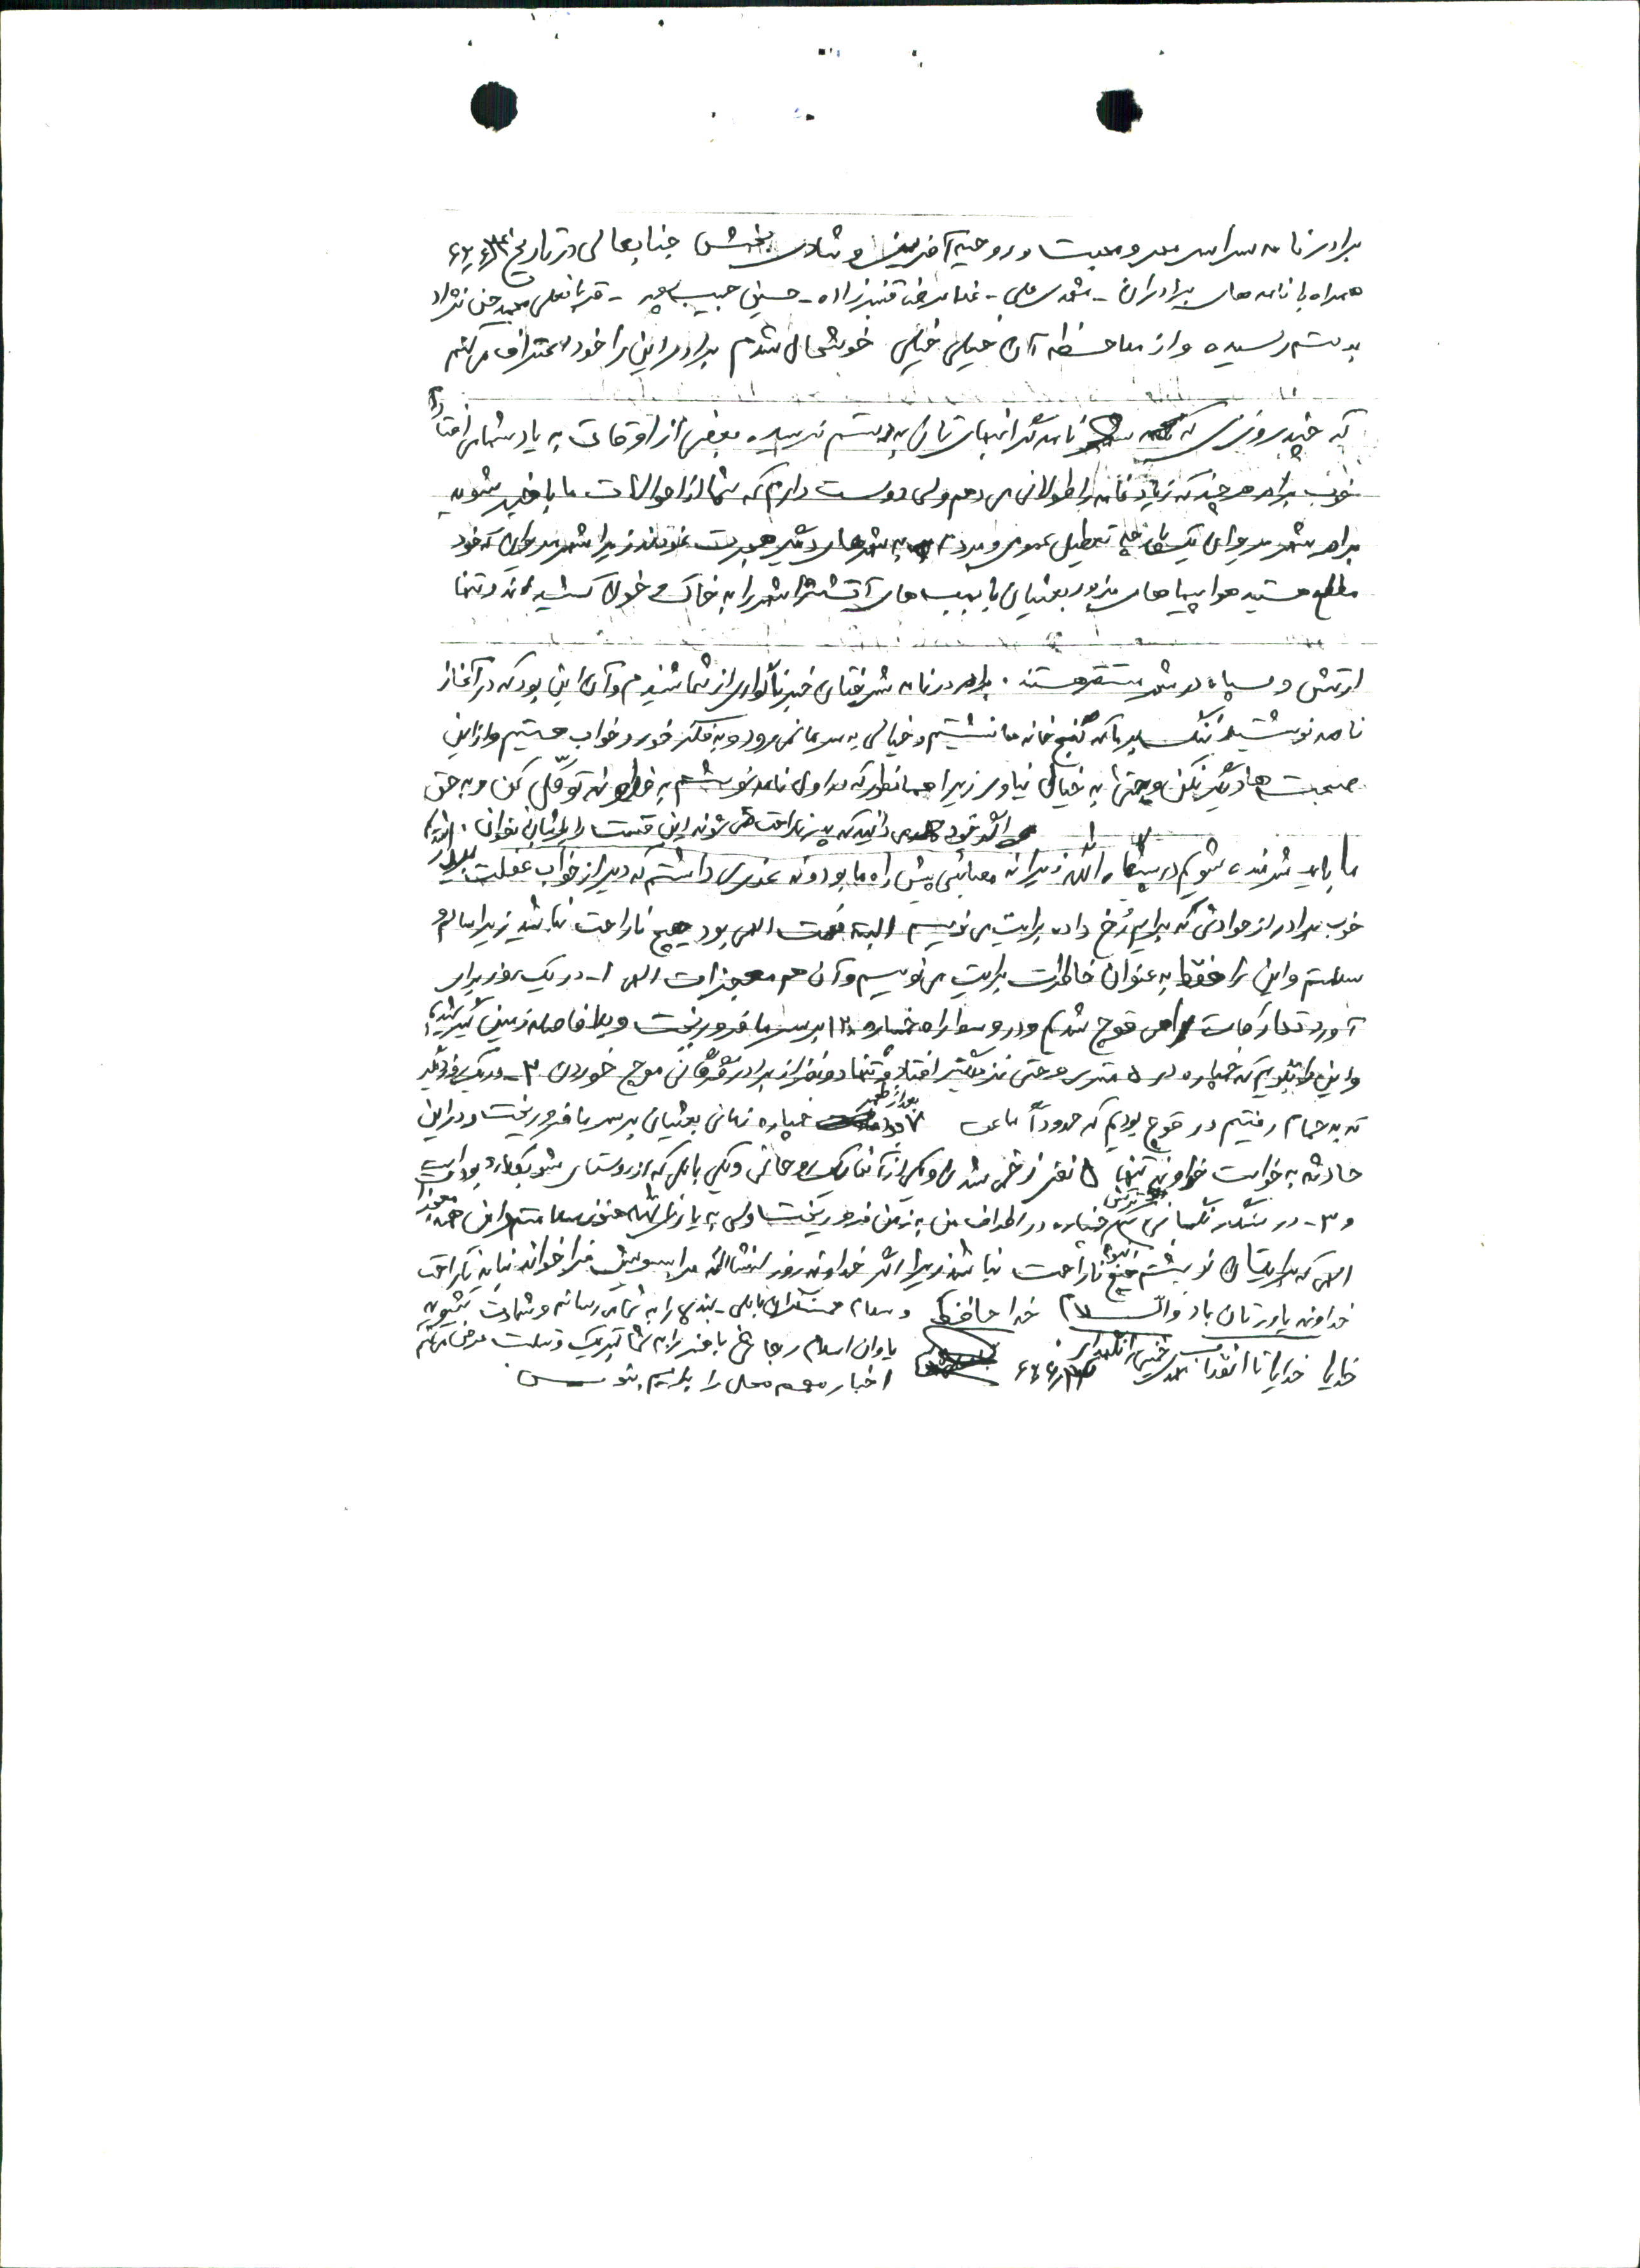 برادر نامه سراسر مهر و محبت و روحیه آفرین و شادی بخش جنابعالی در تاریخ
همراه با نامه های برادران - مشهدی علی - غلامرضا قنبرزاده - حسین حبیب پور - قربانعلی
بدستم رسیده و از ملاحظه آن خیلی خیلی خوشحال شدم برادر این را خود اعتراف می کنم
که چند روزی که نامه گرانبهایتان به دستم نرسیده بعضی از اوقات به یاد شما می افتادم
خوب برادر هر چند که زیاد نامه را طولانی می دهم ولی دوست دارم که شما از احوالات ما با خبر شوید
برادر شهر مریوان تعطیل عمومی و مردم به شهرهای دیگر هجرت نمودند زیرا شهر مریوان که خود
مطلع هستید هواپیماهای مزدور بعثیان با بمب های آتش زا شهر را به خاک و خون کشیده اند و تنها
ارتش و سپاه در شهر مستقر هستند . برادر در نامه شریفتان خبر ناگواری از شما شنیدم و آن این بود که در آغاز
نامه نوشتید ننگ بر ما که کنج خانه ها نشستیم و خیالی به سر ما نمی رود و به فکر خورد و خواب هستیم و از این
صحبت ها دیگر نکن و حتی به خیال نیاور زیرا همانطور که در اول نامه نوشتم به خداوند توکل کن و به حق
اگر خود می دانید که پدر ناراحت می شوند این قسمت را برایشان نخوان .
ما باید شرمنده شویم در پیشگاه الله زیرا نه معنایی پیش راه ما بود و نه عذری داشتم که دیر از خواب غفلت
خوب برادر از حوادثی که برایم رخ داده برایت می نویسم البته نعمت الهی بود هیچ ناراحت نباشید زیرا سالم و
سلامتم و این را فقط به عنوان خاطرات برایت می نویسم و آن هم معجزات الهی ۱- در یک روز برای
آورد تدارکات راهی قوچ شدیم و در وسط راه خمپاره ۱۲۰ بر سر ما فرو ریخت و بلا فاصله زمین گیر شدیم
و این را بگویم که خمپاره در ۵ متری و حتی نزدیکتر افتاد و تنها دو نفر از برادر موج خوردن ۲- در یک روز دیگر
که به حمام رفتیم در قوچ بودیم که حدوداً ساعت ۷ بعد از ظهر خمپاره زمانی بعثیان بر سر ما فرو ریخت و در این
حادثه به خواست خداوند تنها ۵ نفر زخمی شدن و یکی از آنها یک روحانی و یکی بابلی که از روستای بود است
و ۳- در سنگر نگهبانی ترکش خمپاره در اطراف من به زمین فرو ریخت ولی به یاری الله هنوز سلامتم و این همه معجزه
الهی که برایتان نوشتم هیچ ناراحت نباشید زیرا اگر خداوند روز انشاالله مرا بسویش فرا خواند نباید ناراحت
خداوند یاورتان باد والسلام خدا حافظ و سلام همسنگران بابلی - بندپی را به شما می رسانم و شهادت
خدایا خدایا تا انقلاب مهدی خمینی را نگهدار یاوران اسلام رجایی با هنر را به شما تبریک و تسلیت عرض می کنم
اخبار مهم محل را برایم بنویس